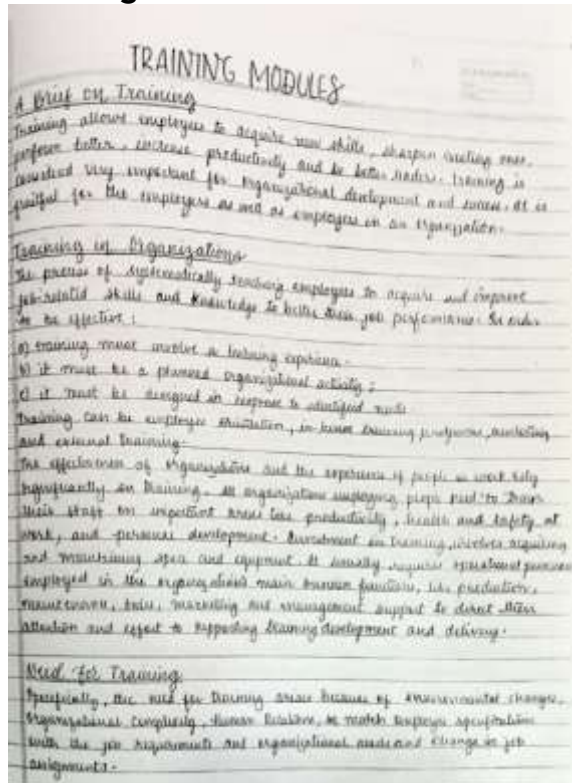 TRAINING MODULES
A Brief on Training
Training allows employees to acquire new skills, sharpen existing ones,
perform better, increase productivity and be better leaders. Training is
considered very important for organizational development and success. It is
fruitful for the employers as well as employees in an organization.
Training in Organizations
The process of systematically teaching employees to acquire and improve
job-related skills and knowledge to better their job performance. In order
to be effective:
a) training must involve a learning experience.
b) it must be a planned organizational activity;
c) it must be designed in response to identified needs
Training can be employee orientation, in-house training programs, mentoring
and external training.
The effectiveness of organizations and the experience of people in work rely
significantly on training. All organizations employing people need to train
their staff on important areas like productivity, health and safety at
work, and personal development. Investment in training, involves acquiring
and maintaining space and equipment. It usually requires operational personnel
employed in the organization's main business functions, like production,
maintenance, sales, marketing and management support to direct their
attention and effort to supporting training development and delivery.
Need for Training
Specifically, the need for training arises because of environmental changes,
organizational complexity, human relations, to match employee specifications
with the job requirements and organizational needs and change in job
assignments.